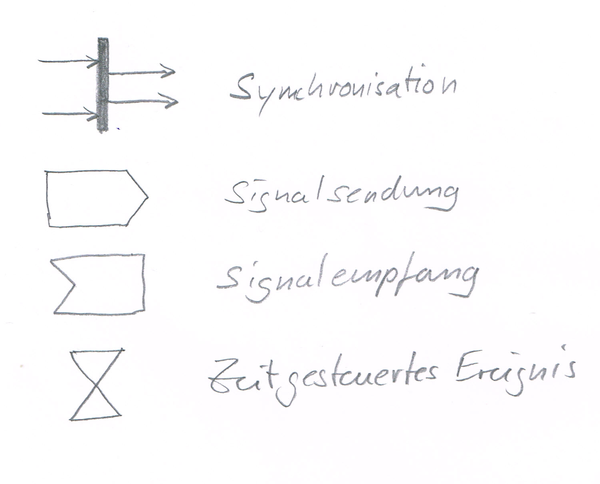 Synchronisation
Signalsendung
Signalempfang
Zeitgesteuertes Ereignis